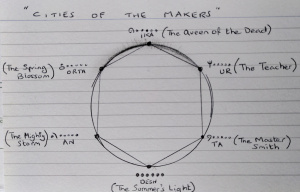 "CITIES OF THE MAKERS"
(The Queen of the Dead)
(The Spring Blossom)
ORTA
UR (The Teacher)
(The Mighty Storm)
AN
TA (The Master Smith)
DESH
(The Summer's Light)